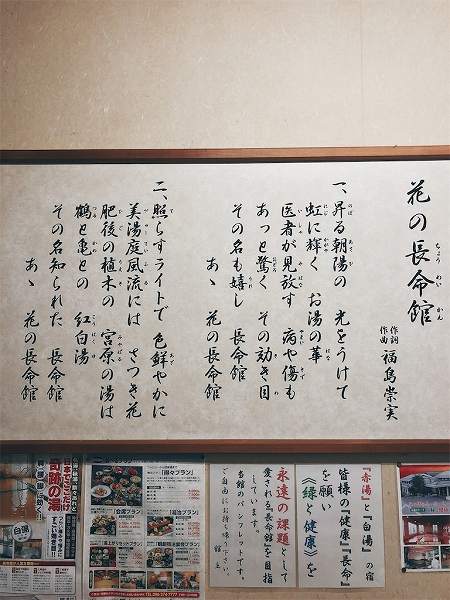 花の長命館
作詞
作曲 福島崇実
一、昇る朝陽の 光をうけて
虹に輝く お湯の華
医者が見放す 病や傷も
あっと驚く その効き目
その名も嬉し 長命館
あゝ 花の長命館
二、照らすライトで 色鮮やかに
美湯庭風流には さつき花
肥後の植木の 宮原の湯は
鶴と亀との 紅白湯
その名知られた 長命館
あゝ 花の長命館
『赤湯』と『白湯』の宿
皆様の『健康』『長命』
を願い
《緑と健康》を
永遠の課題として
愛される長命館を目指
しています。
当館のパンフレットです。
ご自由にお持ち下さい。
館主
日本でここだけ
奇跡の湯
白湯
会席プラン
宿泊プラン